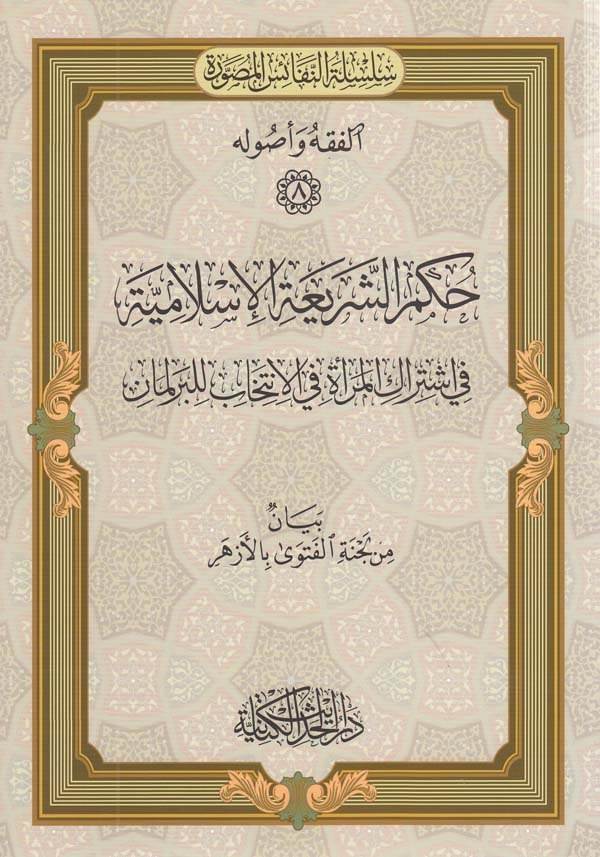 سلسلة النفائس المصورة
الفقه وأصوله
٨
حكم الشريعة الإسلامية
في اشتراك المرأة في الانتخاب للبرلمان
بيان
من لجنة الفتوى بالأزهر
دار الحديث الكتانية